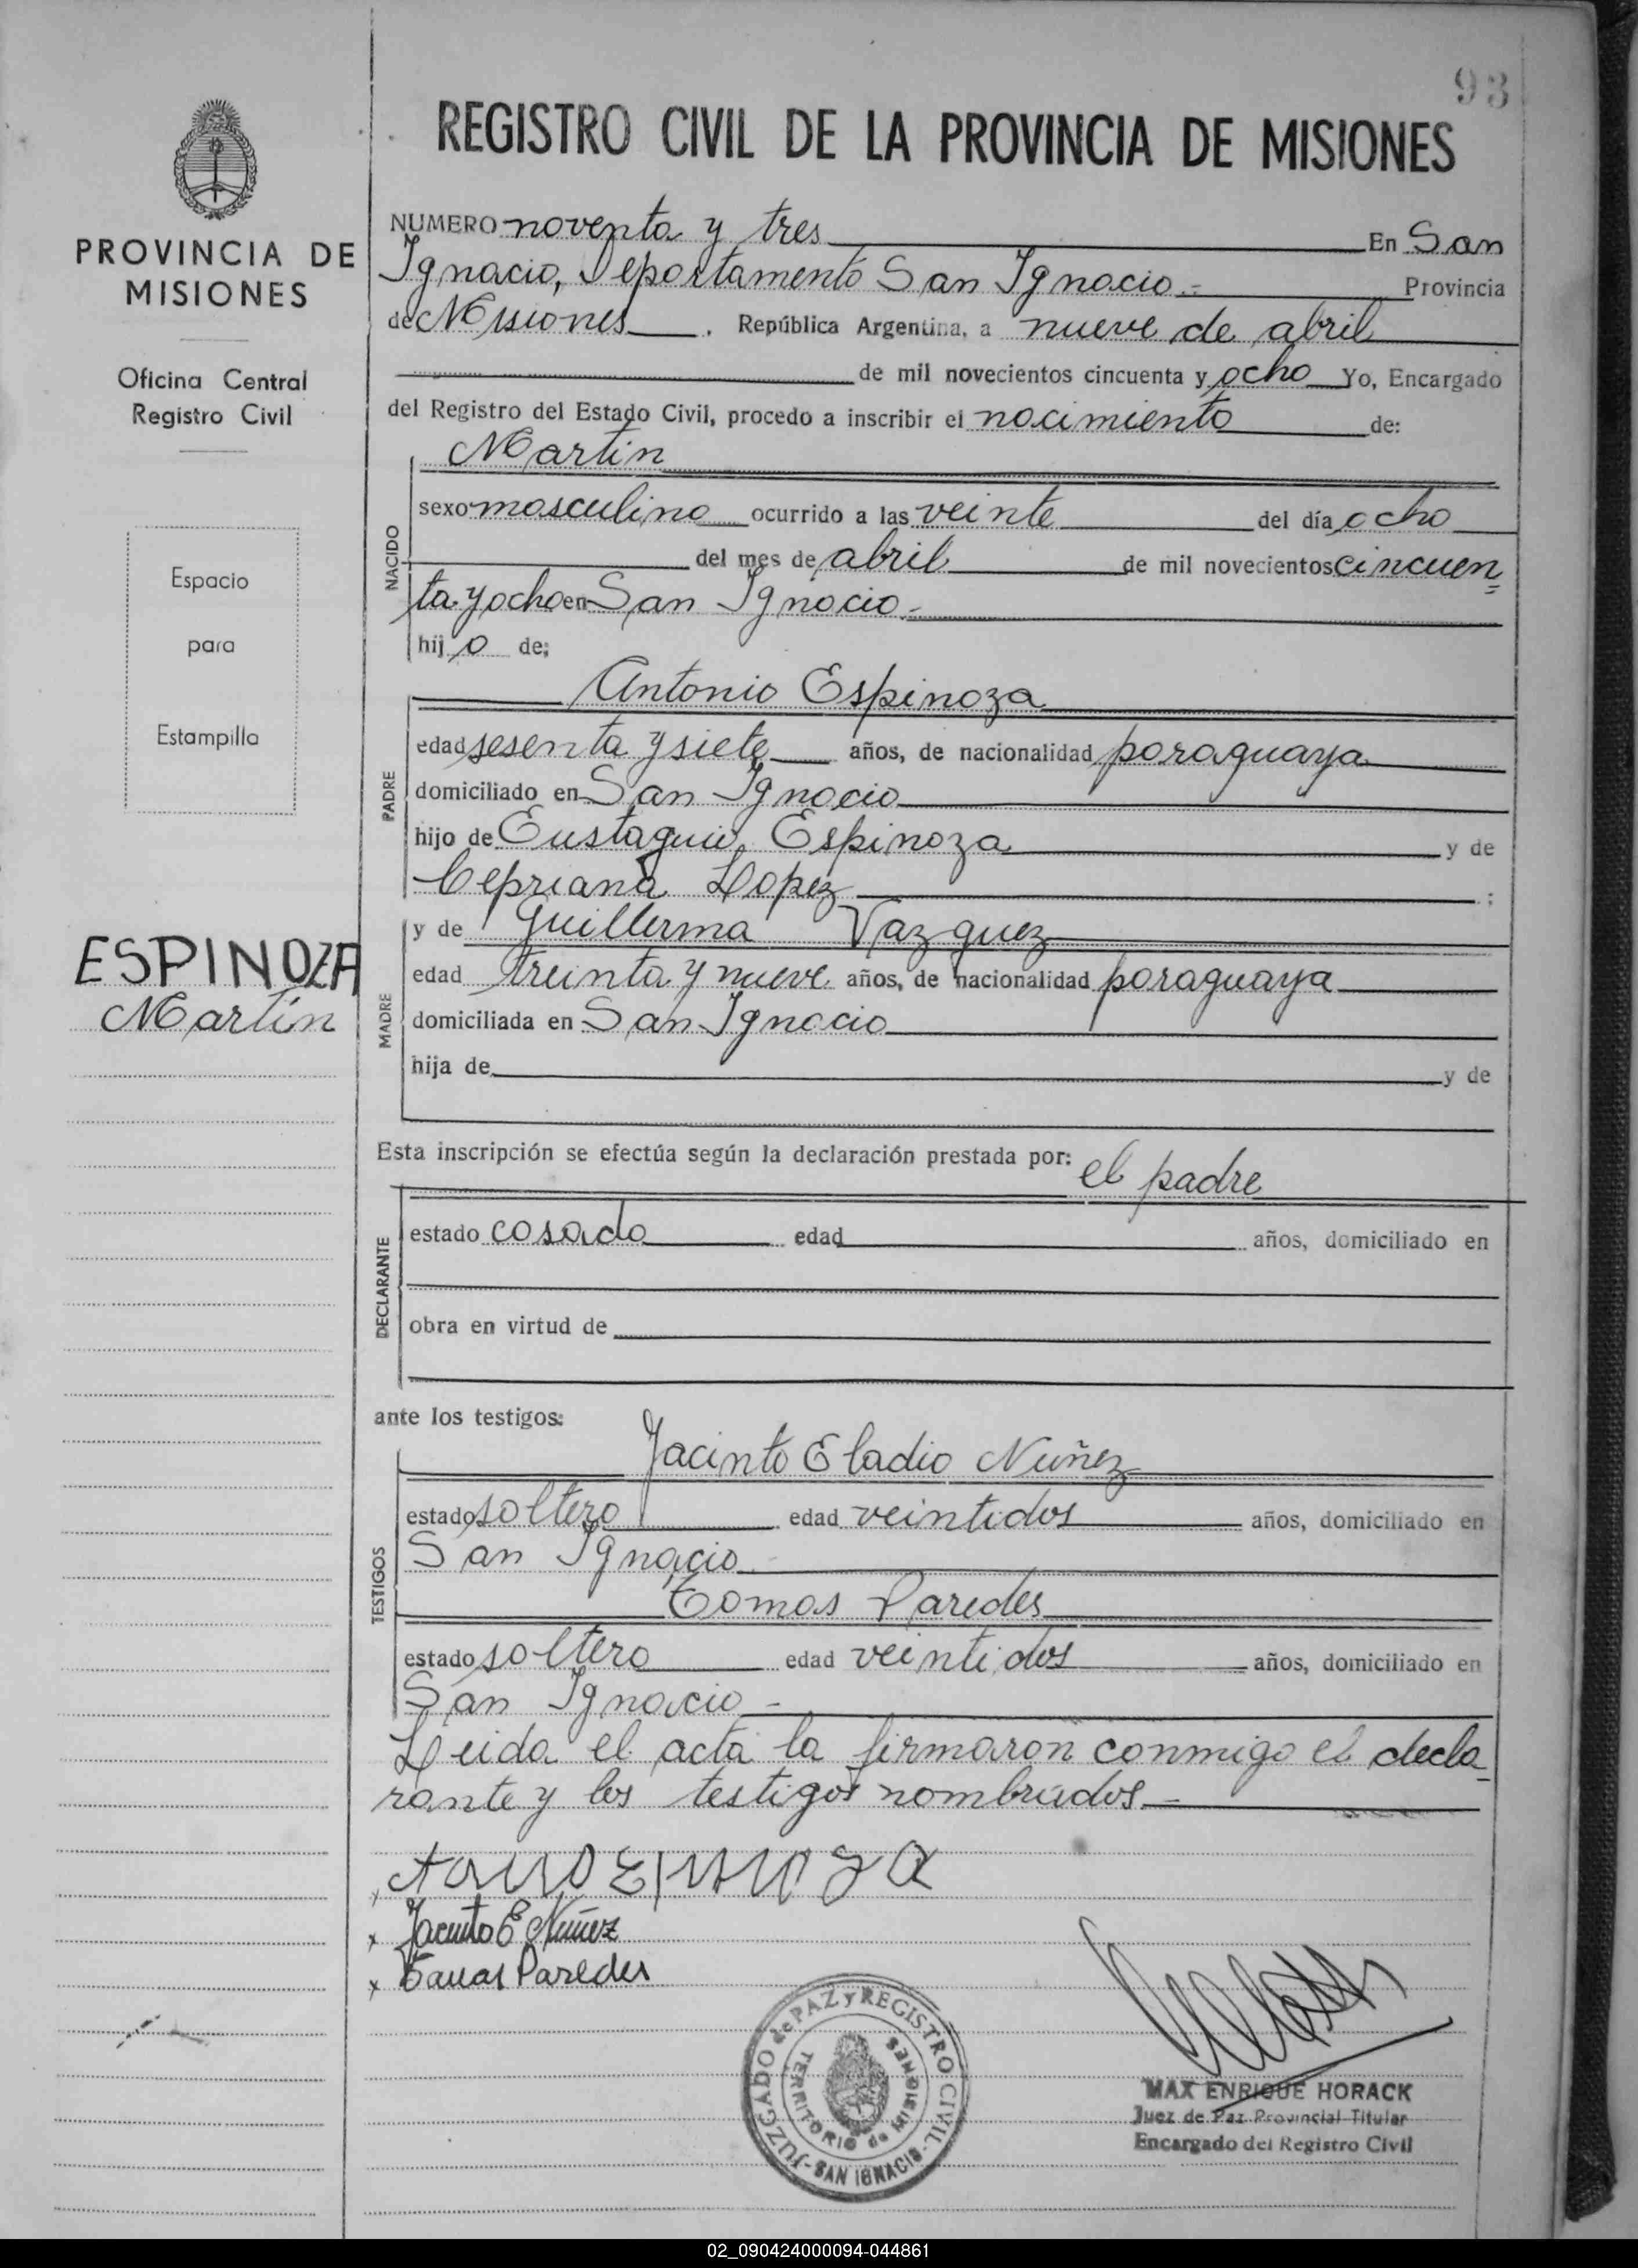 93
REGISTRO CIVIL DE LA PROVINCIA DE MISIONES
PROVINCIA DE
MISIONES
Oficina Central
Registro Civil
Espacio
para
Estampilla
ESPINOZA
Martín
NUMERO noventa y tres En San
Ignacio, Departamento San Ignacio.- Provincia
de Misiones. República Argentina, a nueve de abril
de mil novecientos cincuenta y ocho Yo, Encargado
del Registro del Estado Civil, procedo a inscribir el nacimiento de:
Martín
NACIDO
sexo masculino ocurrido a las veinte del día ocho
del mes de abril de mil novecientos cincuen=
ta y ocho en San Ignacio.-
hijo de;
Antonio Espinoza
PADRE
edad sesenta y siete años, de nacionalidad paraguaya
domiciliado en San Ignacio
hijo de Eustaquio Espinoza y de
Cepriana Lopez ;
y de Guillerma Vazquez
MADRE
edad treinta y nueve años, de nacionalidad paraguaya
domiciliada en San Ignacio
hija de y de
Esta inscripción se efectúa según la declaración prestada por: el padre
DECLARANTE
estado casado edad años, domiciliado en
obra en virtud de
ante los testigos:
Jacinto Eladio Nuñez
TESTIGOS
estado soltero edad veintidos años, domiciliado en
San Ignacio
Tomas Paredes
estado soltero edad veintidos años, domiciliado en
San Ignacio -
Leida el acta la firmaron conmigo el decla_
rante y los testigos nombrados.-
x Jacinto E Nuñez
x Paredes
JUZGADO de PAZ y REGISTRO CIVIL - SAN IGNACIO -
TERRITORIO de MISIONES
MAX ENRIQUE HORACK
Juez de Paz Provincial Titular
Encargado del Registro Civil
02_090424000094-044861